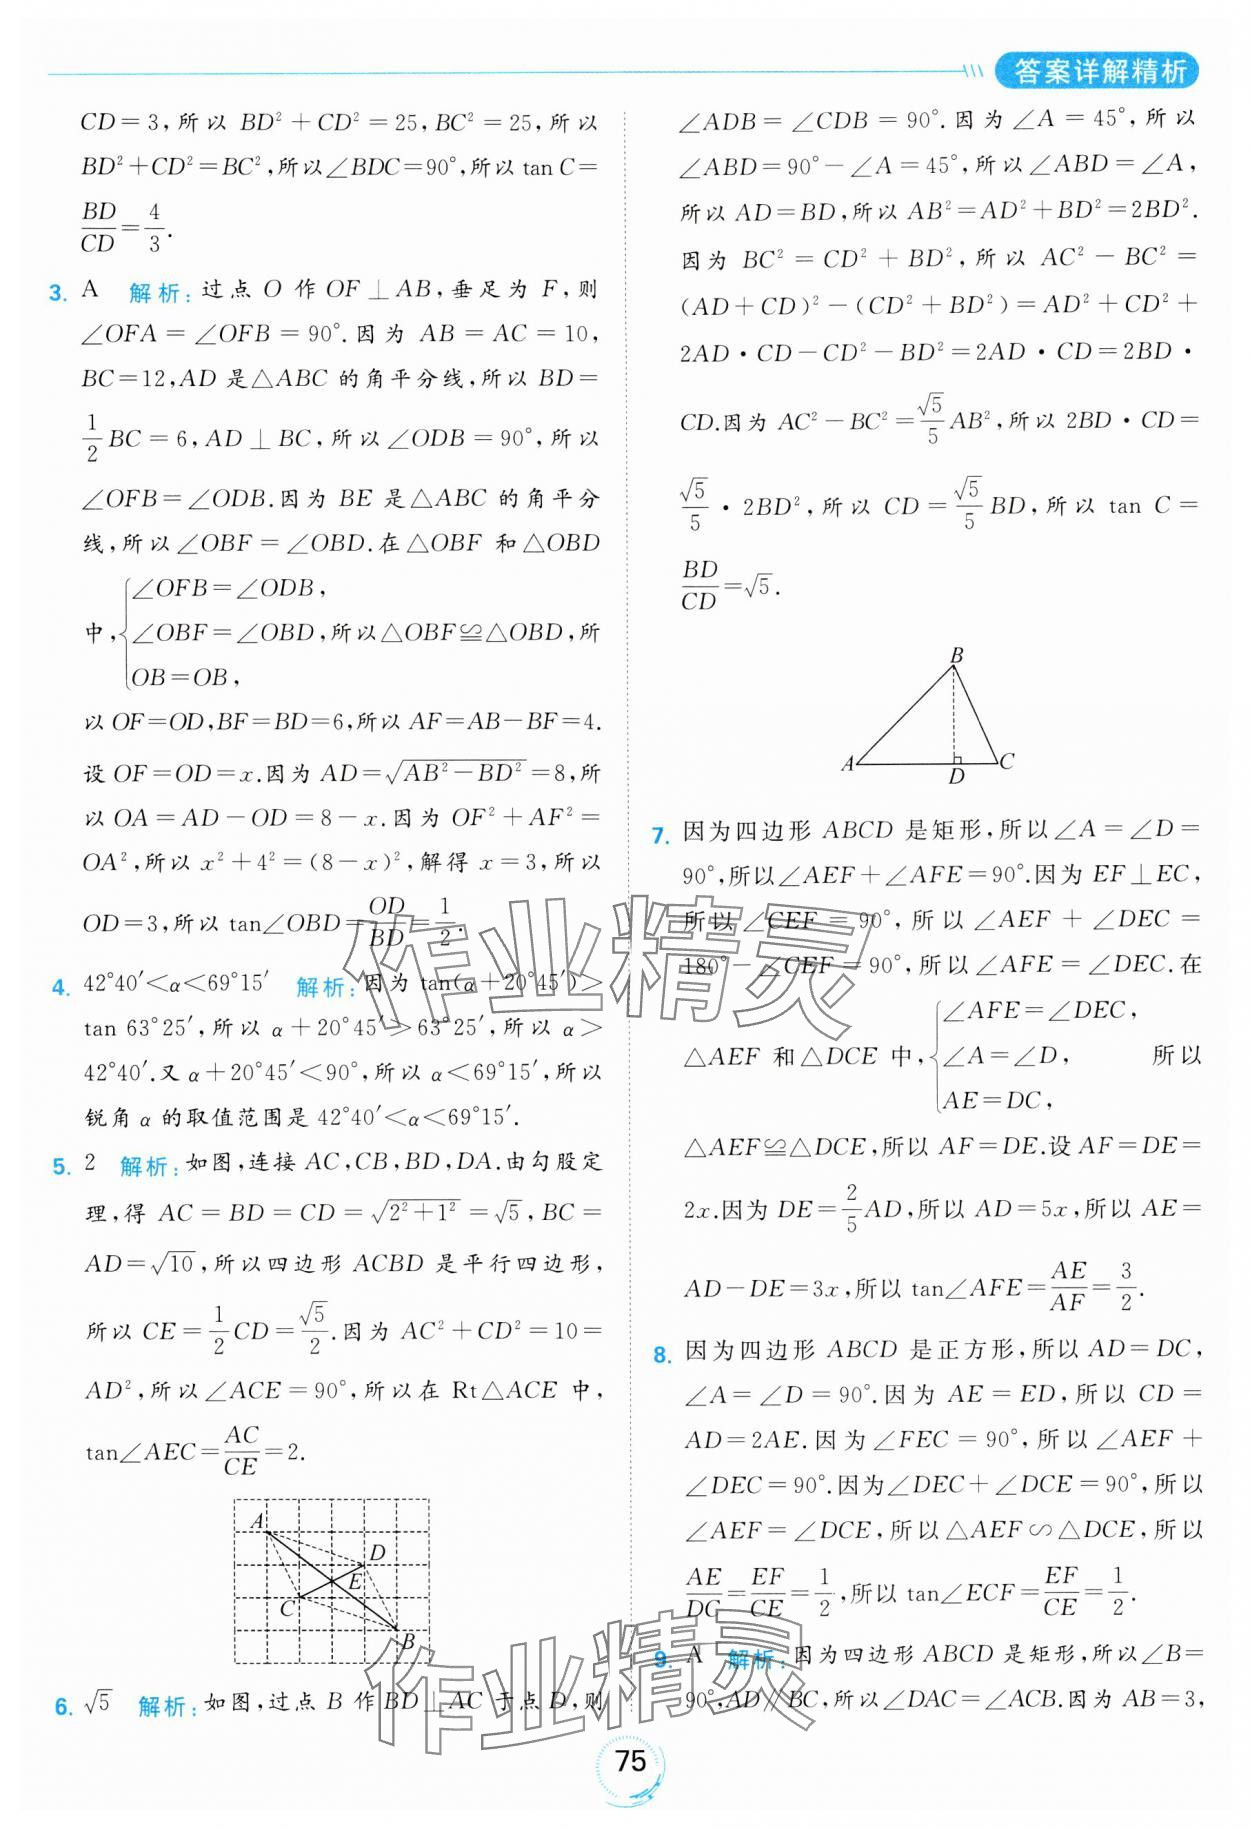 答案详解精析
CD=3,所以 BD²+CD²=25,BC²=25,所以
BD²+CD²=BC²,所以∠BDC=90°,所以 tan C=
BD/CD=4/3.
3. A 解析:过点 O 作 OF⊥AB,垂足为 F,则
∠OFA=∠OFB=90°.因为 AB=AC=10,
BC=12,AD 是△ABC 的角平分线,所以 BD=
1/2BC=6,AD⊥BC,所以∠ODB=90°,所以
∠OFB=∠ODB.因为 BE 是△ABC 的角平分
线,所以∠OBF=∠OBD.在△OBF 和△OBD
∠OFB=∠ODB,
中,{∠OBF=∠OBD,所以△OBF≌△OBD,所
OB=OB,
以 OF=OD,BF=BD=6,所以 AF=AB-BF=4.
设 OF=OD=x.因为 AD=√(AB²-BD²)=8,所
以 OA=AD-OD=8-x.因为 OF²+AF²=
OA²,所以 x²+4²=(8-x)²,解得 x=3,所以
OD=3,所以 tan∠OBD=OD/BD=1/2.
4. 42°40′<α<69°15′ 解析:因为 tan(α+20°45′)>
tan 63°25′,所以 α+20°45′>63°25′,所以 α>
42°40′.又 α+20°45′<90°,所以 α<69°15′,所以
锐角 α 的取值范围是 42°40′<α<69°15′.
5. 2 解析:如图,连接 AC,CB,BD,DA.由勾股定
理,得 AC=BD=CD=√(2²+1²)=√5,BC=
AD=√10,所以四边形 ACBD 是平行四边形,
所以 CE=1/2CD=√5/2.因为 AC²+CD²=10=
AD²,所以∠ACE=90°,所以在 Rt△ACE 中,
tan∠AEC=AC/CE=2.
A
D
E
C
B
6. √5 解析:如图,过点 B 作 BD⊥AC 于点 D,则
∠ADB=∠CDB=90°.因为∠A=45°,所以
∠ABD=90°-∠A=45°,所以∠ABD=∠A,
所以 AD=BD,所以 AB²=AD²+BD²=2BD².
因为 BC²=CD²+BD²,所以 AC²-BC²=
(AD+CD)²-(CD²+BD²)=AD²+CD²+
2AD·CD-CD²-BD²=2AD·CD=2BD·
CD.因为 AC²-BC²=√5/5AB²,所以 2BD·CD=
√5/5·2BD²,所以 CD=√5/5BD,所以 tan C=
BD/CD=√5.
B
A
D
C
7. 因为四边形 ABCD 是矩形,所以∠A=∠D=
90°,所以∠AEF+∠AFE=90°.因为 EF⊥EC,
所以∠CEF=90°,所以∠AEF+∠DEC=
180°-∠CEF=90°,所以∠AFE=∠DEC.在
∠AFE=∠DEC,
△AEF 和△DCE 中,{∠A=∠D, 所以
AE=DC,
△AEF≌△DCE,所以 AF=DE.设 AF=DE=
2x.因为 DE=2/5AD,所以 AD=5x,所以 AE=
AD-DE=3x,所以 tan∠AFE=AE/AF=3/2.
8. 因为四边形 ABCD 是正方形,所以 AD=DC,
∠A=∠D=90°.因为 AE=ED,所以 CD=
AD=2AE.因为∠FEC=90°,所以∠AEF+
∠DEC=90°.因为∠DEC+∠DCE=90°,所以
∠AEF=∠DCE,所以△AEF∽△DCE,所以
AE/DC=EF/CE=1/2,所以 tan∠ECF=EF/CE=1/2.
9. A 解析:因为四边形 ABCD 是矩形,所以∠B=
90°,AD∥BC,所以∠DAC=∠ACB.因为 AB=3,
作业精灵
作业精灵
75